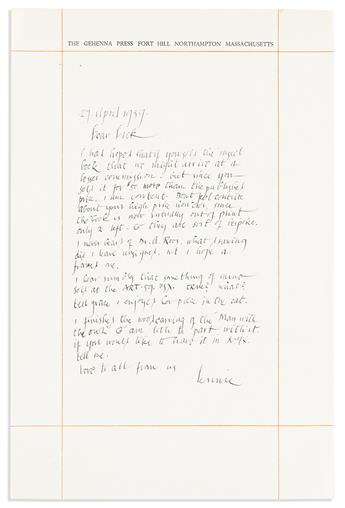 THE GEHENNA PRESS FORT HILL NORTHAMPTON MASSACHUSETTS
27 April 1959.
Dear Dick
I had hoped that if you sell the insect
book that we might arrive at a
lesser commission. but since you
sold it for $50 more than the published
price, I am content. Don't feel contrite
about your high price however, since
the book is now virtually out of print
only 2 left. & they are sort of
I never heard of Dr. A. Ross. what drawing
did I leave unsigned. not I hope a
framed one.
I hear rumors that something of mine
sold at the ART. true? what?
tell grace I enjoyed her piece in the cat.
I finished the woodcarving of the "Man with
the owl" & am loth to part with it
if you would like to have it in
tell me.
Love to all from us
Lennie